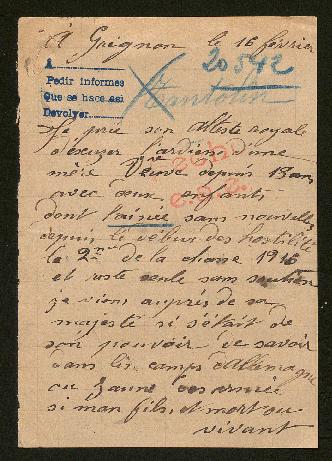 A Grignon le 16 février
20542
A
Pedir informes
Que se hace así
Devolver
Je prie son Alteste royale
d'excuzer l'ardience d'une
mère Veuve depuis 13 ans
avec deux enfants
dont l'ainée sans nouvelles
depuis le début des hostilité
le 2me de la classe 1916
et reste seule sans soutien
je viens auprès de sa
majesté si s'était de
son pouvoir de savoir
dans les camps d'Allemagne
ou zaune des armée
si mon fils et mort ou
vivant